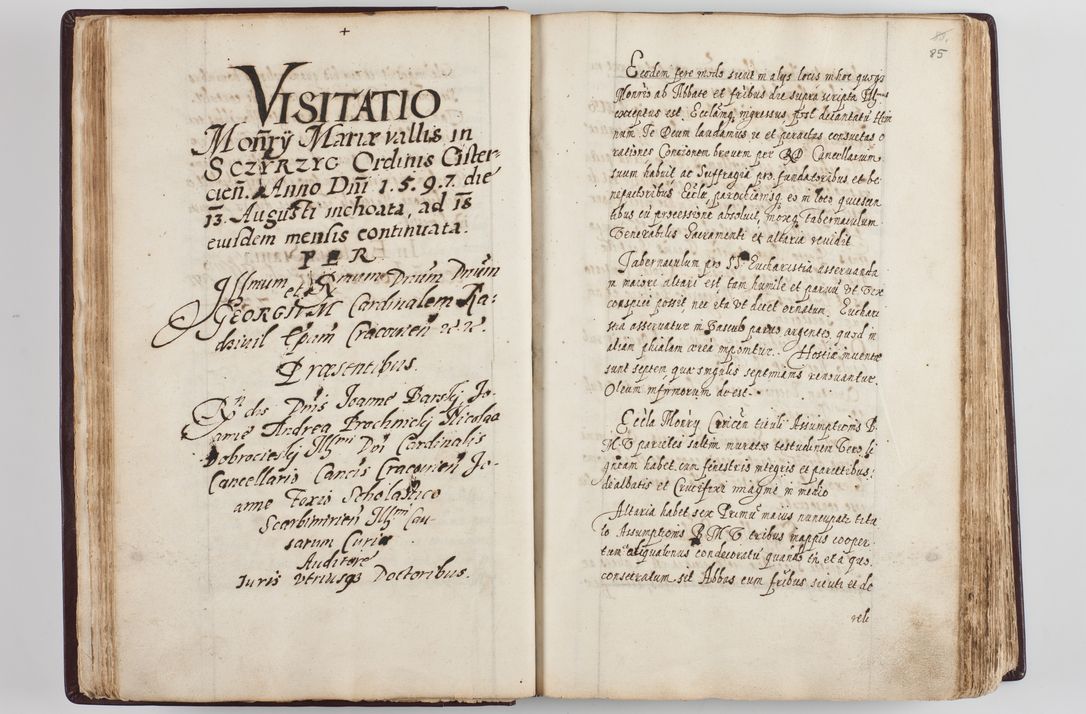 VISITATIO
Monrÿ Mariæ vallis in
SCZYRZYC Ordinis Cister-
cien. Anno Dni 1.5.9.7. die
13. Augusti inchoata, ad 18
eiusdem mensis continuata.
PER
Illmum et Rmum Dnum Dnum
GEORGIUM Cardinalem Ra-
diuil Epum Cracouien etc etc
Præsentibus.
Rndis Dnis Joanne Barskj Jo-
anne Andrea Prochnickj Nicolao
Dobrocieskj Illmi Dni Cardinalis
Cancellario Cancis Cracouien Jo-
anne Foxio Scholastico
Scarbimirien Illmi Cau-
sarum Curiæ
Auditore
Iuris vtriusq Doctoribus.
85.
85
Eodem fere modo sicut in alys locis in hoc quoq
Monrio ab Abbate et fribus die supra scripta Illmus
exceptus est. Ecclamq ingressus post decantatu Him
num Te Deum laudamus etc et peractas consuetas o
rationes Concionem breuem per RD Cancellarium
suum habuit ac Suffragia pro fundatoribus et be
nefactoribus Eccla, parochianisq eo in loco quiescen
tibus cu processione absoluit, moxq tabernaculum
Venerabilis Sacramenti et altaria reuidit
Tabernaculum pro SS Eucharistia asseruanda
in maiori altari est tam humile et paruu vt vix
conspici possit, nec ita vt decet ornatum. Euchari
stia asseruatur in Vasculo paruo argenteo, quod in
aliam phialam ærea imponitur. Hostiæ inuentæ
sunt septem quæ singulis septimanis renouantur.
Oleum infirmorum deest.
Eccla Monry tituli Assumptionis B
M V parietes saltim muratos testudinem vero li
gneam habet, cum fenestris integris et parietibus
dealbatis et Crucifixi imagine in medio
Altaria habet sex Primu maius nuncupat titu
lo Assumptionis B M V tribus mappis cooper
tum aliqualenus condecoratu quando tn et a quo
consecratum sit Abbas cum fribus sicuti et de
reli